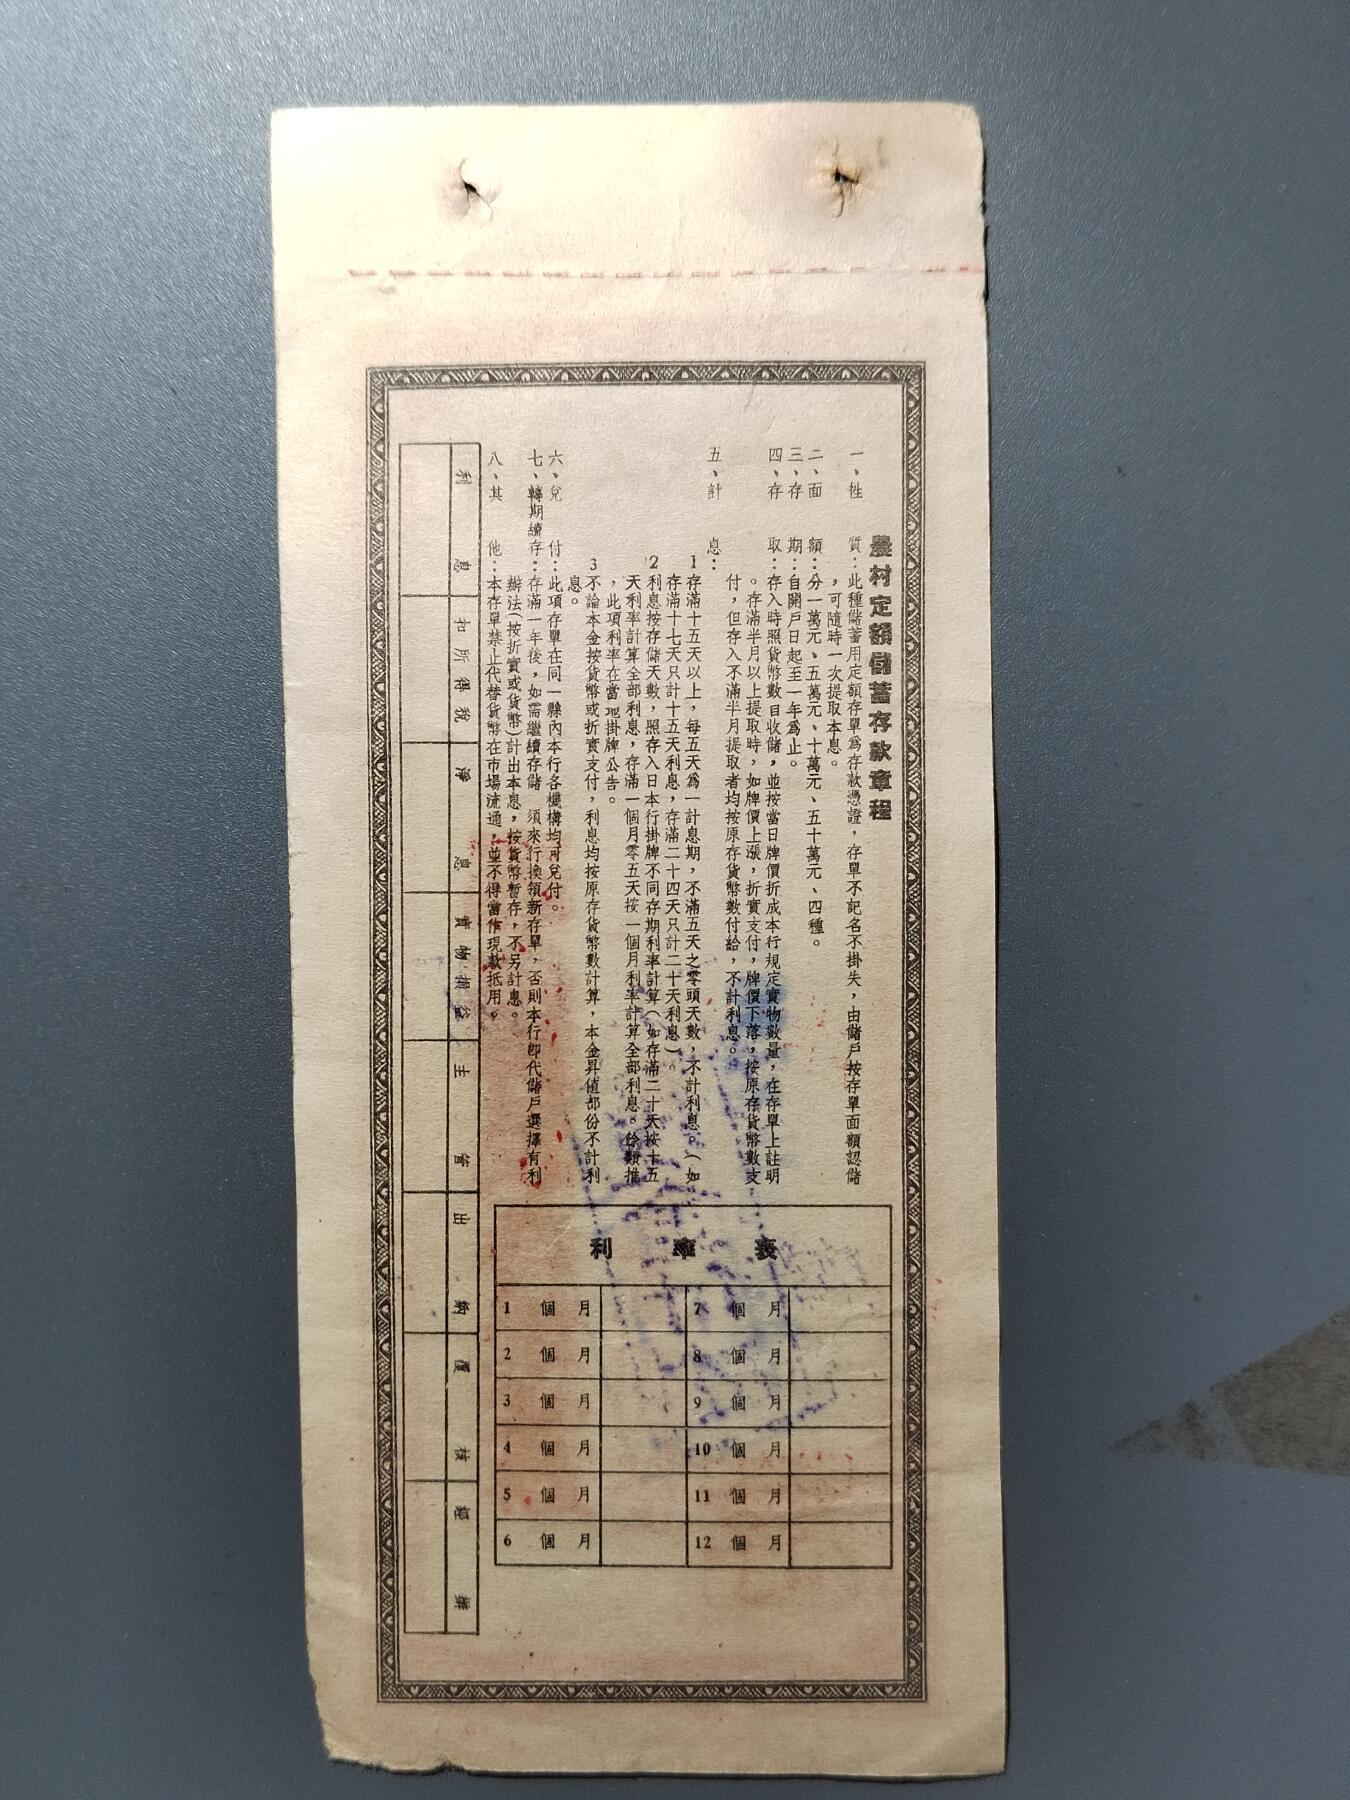 農村定額儲蓄存款章程
一、性質：此種儲蓄用定額存單爲存款憑證，存單不記名不掛失，由儲戶按存單面額認儲
，可隨時一次提取本息。
二、面額：分一萬元、五萬元、十萬元、五十萬元、四種。
三、存期：自開戶日起至一年爲止。
四、存取：存入時照貨幣數目收儲，並按當日牌價折成本行規定實物數量，在存單上註明
。存滿半月以上提取時，如牌價上漲，折實支付，牌價下落，按原存貨幣數支
付，但存入不滿半月提取者均按原存貨幣數付給，不計利息。
五、計息：
1 存滿十五天以上，每五天爲一計息期，不滿五天之零頭天數，不計利息。（如
存滿十七天只計十五天利息，存滿二十四天只計二十天利息）。
2 利息按存儲天數，照存入日本行掛牌不同存期利率計算（如存滿二十天按十五
天利率計算全部利息，存滿一個月零五天按一個月利率計算全部利息。餘類推
，此項利率在當地掛牌公告。
3 不論本金按貨幣或折實支付，利息均按原存貨幣數計算，本金昇値部份不計利
息。
六、兌付：此項存單在同一縣內本行各機構均可兌付。
七、轉期續存：存滿一年後，如需繼續存儲 須來行換領新存單，否則本行卽代儲戶選擇有利
辦法（按折實或貨幣）計出本息，按貨幣暫存，不另計息。
八、其他：本存單禁止代替貨幣在市場流通，並不得當作現款抵用。
利率表
1 個月
2 個月
3 個月
4 個月
5 個月
6 個月
7 個月
8 個月
9 個月
10 個月
11 個月
12 個月
利息
扣所得稅
淨息
實物損益
主管
出納
覆核
經辦